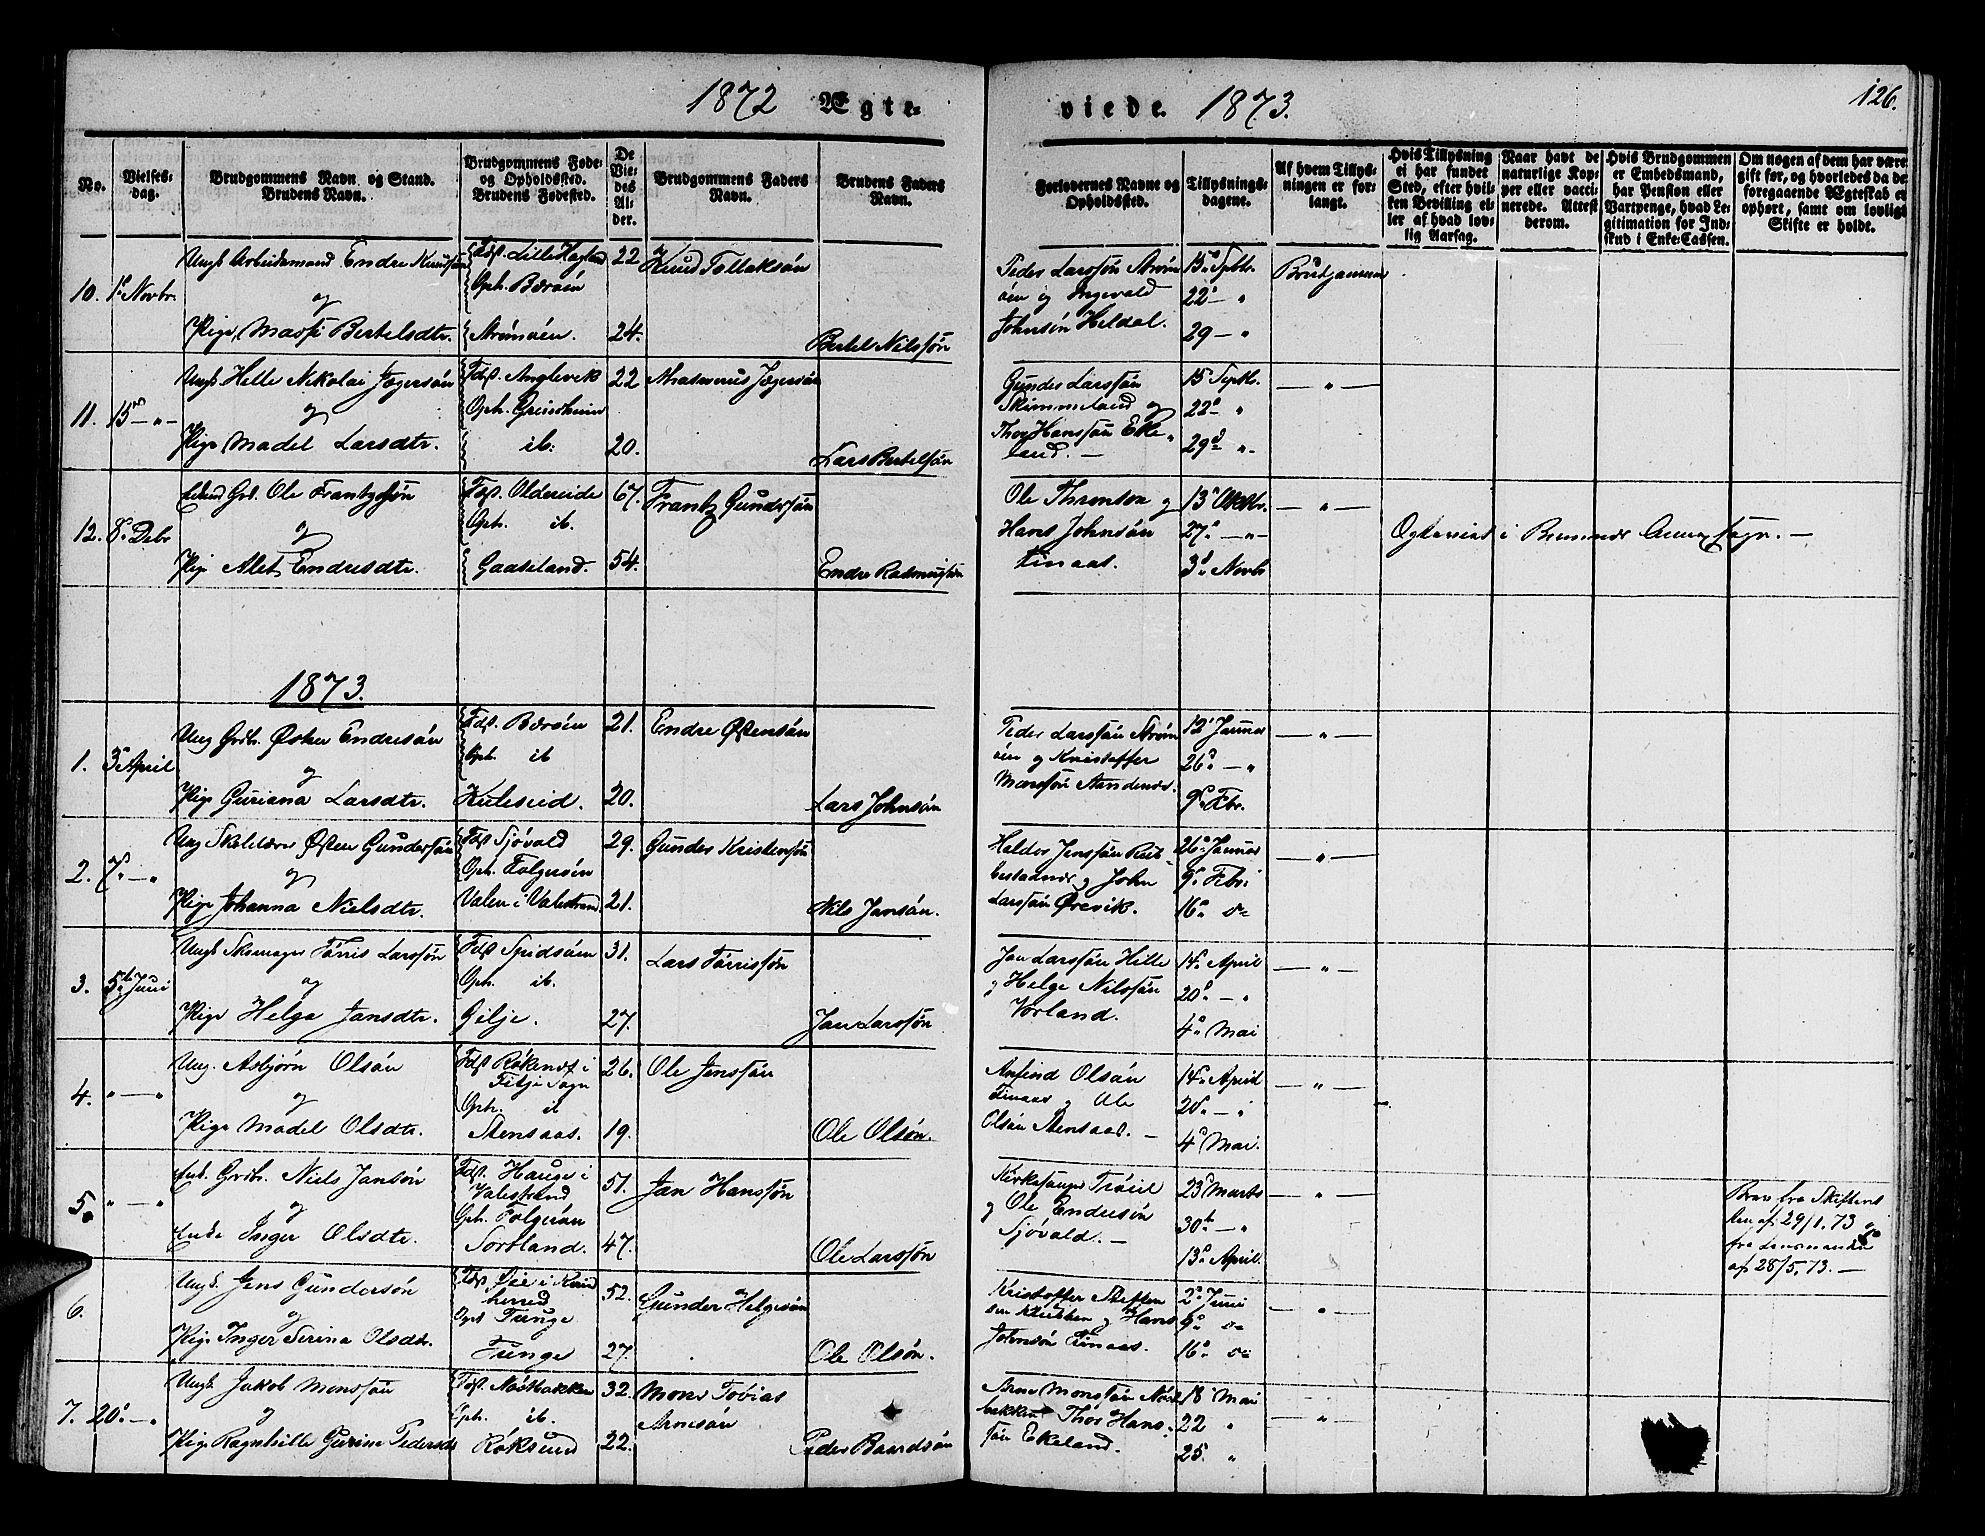 1872 Ægte-
viede. 1873.
126.
No.
Vielses-
dag.
Brudgommens Navn og Stand.
Brudens Navn.
Brudgommens Føde-
og Opholdssted.
Brudens Fødested.
De
Vie-
des
Al-
der.
Brudgommens Faders
Navn.
Brudens Faders
Navn.
Forlovernes Navne og
Opholdssted.
Tillysnings-
dagene.
Af hvem Tillys-
ningen er for-
langt.
Hvis Tillysning
ei har fundet
Sted, efter hvil-
ken Bevilling el-
ler af hvad lov-
lig Aarsag.
Naar havt de
naturlige Kop-
per eller vacci-
nerede. Attest
derom.
Hvis Brudgommen
er Embedsmand,
har Pension eller
Vartpenge, hvad Le-
gitimation for Ind-
skud i Enke-Cassen.
Om nogen af dem har være
gift før, og hvorledes da de
foregaaende Ægteskab e
ophørt, samt om lovligt
Skifte er holdt.
10. 1ste Novbr.
Ungk Arbeidsmand Endre Knudsøn
og
Pige Marthe Bertelsdtr.
Fdst. Lille
Oph. Børøen
Strømøen.
22
24.
Knud Tollaksøn
Bertel Nilssøn
Peder Larssøn Strøm
øen og Ingevald
Johnsøn Heldal.
15de Septbr.
22 - "
29 - "
Brudgommen
11. 15de - " -
Ungk Helle Nikolai Jøgersøn
og
Pige Madel Larsdtr.
Fdst. Anglevik
Oph. Grindheim
ib.
22
20.
Rasmus Jøgersøn
Lars Bertelsøn
Gunder Larssøn
Skimmeland og
Thor Hanssøn Eke-
land. -
15 Septbr.
22 - "
29d "
- " -
12. 8de Debr
Enkmd Grb. Ole Frantzsøn
og
Pige Alet Endresdtr.
Fdst. Oldereide
Oph. ib.
Gaaseland.
67.
54.
Frantz Gundersøn
Endre Rasmussøn
Ole Thronson og
Hans Johnsøn
Finaas.
13 Oktbr.
27 - " -
3d Novb
- " -
Ægteviet i Bremnes Annexsogn. -
1873.
1. 3die April
Ung Grbr. Østen Endresøn
og
Pige Guriana Larsdtr.
Fdst. Børøen
Oph. ib
Kuleseid.
21.
20.
Endre Østensøn
Lars Johnsøn
Peder Larssøn Strøm
øen og Kristoffer
Monssøn Sandenes.
12 Januar
26 - "
9 Febr.
- " -
2. 7de - "
Ung Skolelærer Østen Gundersøn
og
Pige Johanna Nielsdtr.
Fdst Sjøvold
Oph. Folgerøen
Valen i Valestrand
29.
21.
Gunder Kristensøn
Nils Jansøn.
Haldor Jenssøn Rub-
bestadnes og John
Larssøn Ørevik.
26 Januar
9 Febr
16 do
- " -
3. 5te Juni
Ungk Skomager Tørris Larssøn
og
Pige Helga Jansdtr.
Fdst Spidsøen
Oph. ib.
Gilje.
31.
27.
Lars Tørrissøn
Jan Larssøn
Jan Larssøn Hille
og Helge Nilssøn
Vorland.
14 April
20 - "
4 Mai
- " -
4. " - "
Ung. Asbjørn Olsøn
og
Pige Madel Olsdtr.
Fdst Røkenes i
Fitje Sogn
Oph. ib
Stensaas.
26.
19.
Ole Jenssøn
Ole Olsøn.
Anfind Olsøn
Finaas og Ole
Olsøn Stensaas. -
14 April
20 - "
4 Mai.
- " -
5. " - "
Enk. Grbr. Niels Jansøn
og
Enke Inger Olsdtr.
Fdst. Hauge i
Valestrand
Oph. Folgerøen
Sortland.
51.
47.
Jan Hanssøn
Ole Larssøn
Kirkesanger Trøeil
og Ole Endersøn
Sjøvold. -
23 Marts
30te - "
13 April
- " -
Brev fra Skifteret
ten af 29/1. 73 og
fra Lensmanden
af 28/5. 73. -
6.
Ungk. Jens Gundersøn
og
Pige Inger Serina Olsdtr.
Fdst Øie i Kvind
herred
Oph Tunge
Tunge
52.
27.
Gunder Helgesøn
Ole Olsøn.
Kristoffer Steffen
sen Klubben og Hans
Johnsøn Finaas.
2 Juni
9 do
16 do
- " -
7. 20de - "
Ungk. Jakob Monssøn
og
Pige Ragnhille Gurine Pedersdt
Fdst. Nøstbakken
Oph. ib.
Røksund
32.
22.
Mons Tobias
Arnesøn
Peder Baardsøn
Arne Monssøn Nøst
bakken Thor Hans-
søn Ekeland.
18 Mai
22 "
25. "
- " -